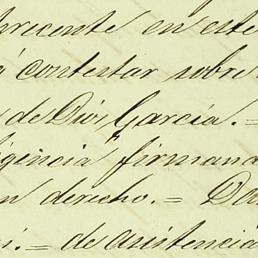 presente en este
contestar sobre
de Dios Garcia. =
firmana
derecho. =
= de asistencia